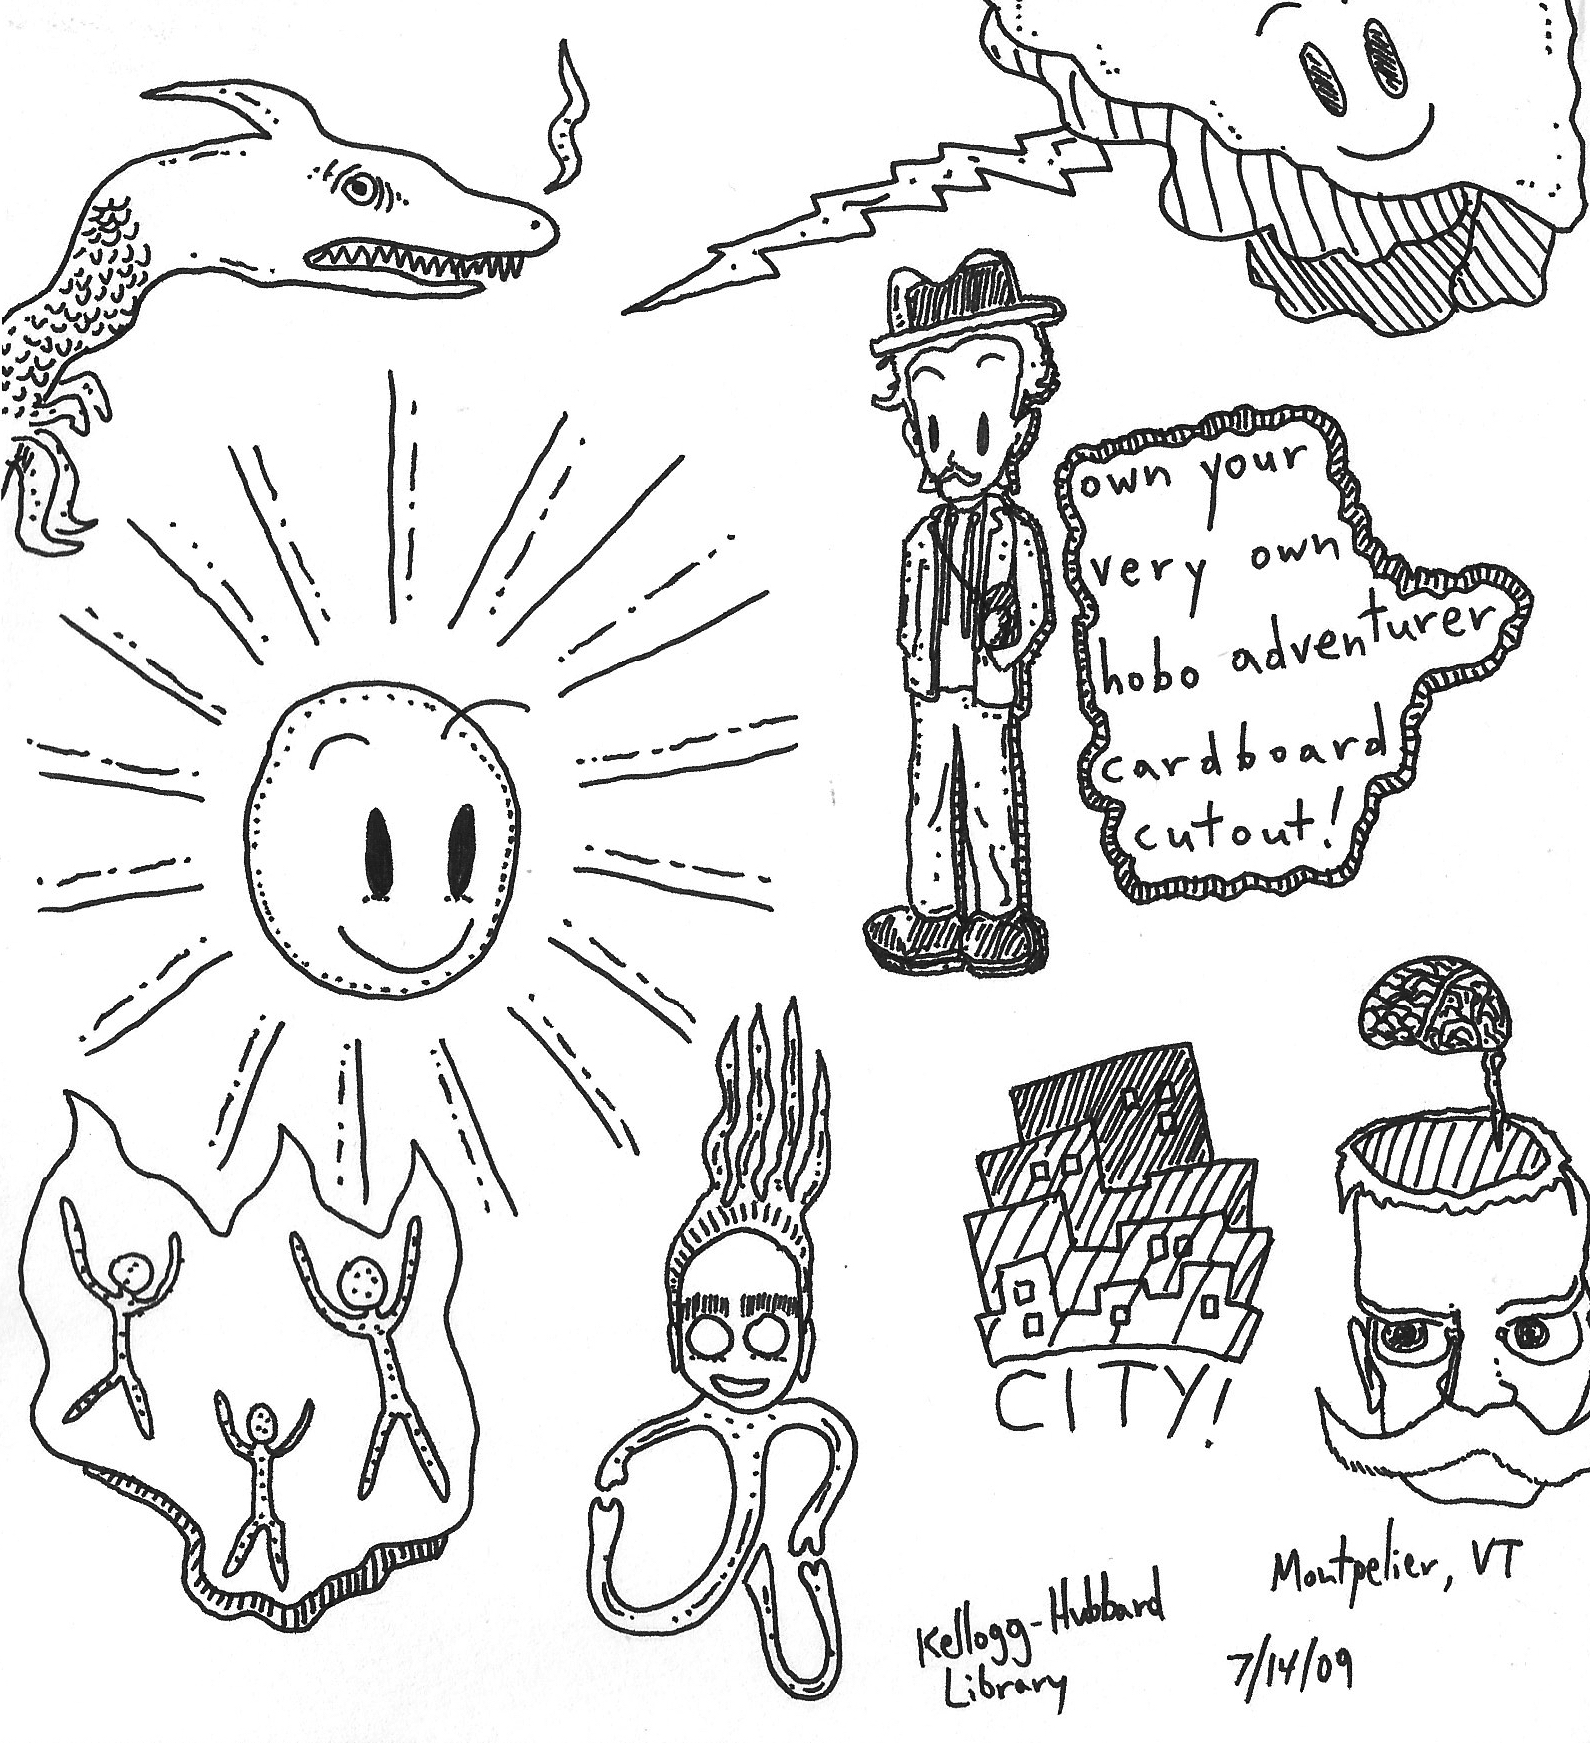 own your
very own
hobo adventurer
cardboard
cutout!
CITY!
Kellogg-Hubbard
Library
Montpelier, VT
7/14/09